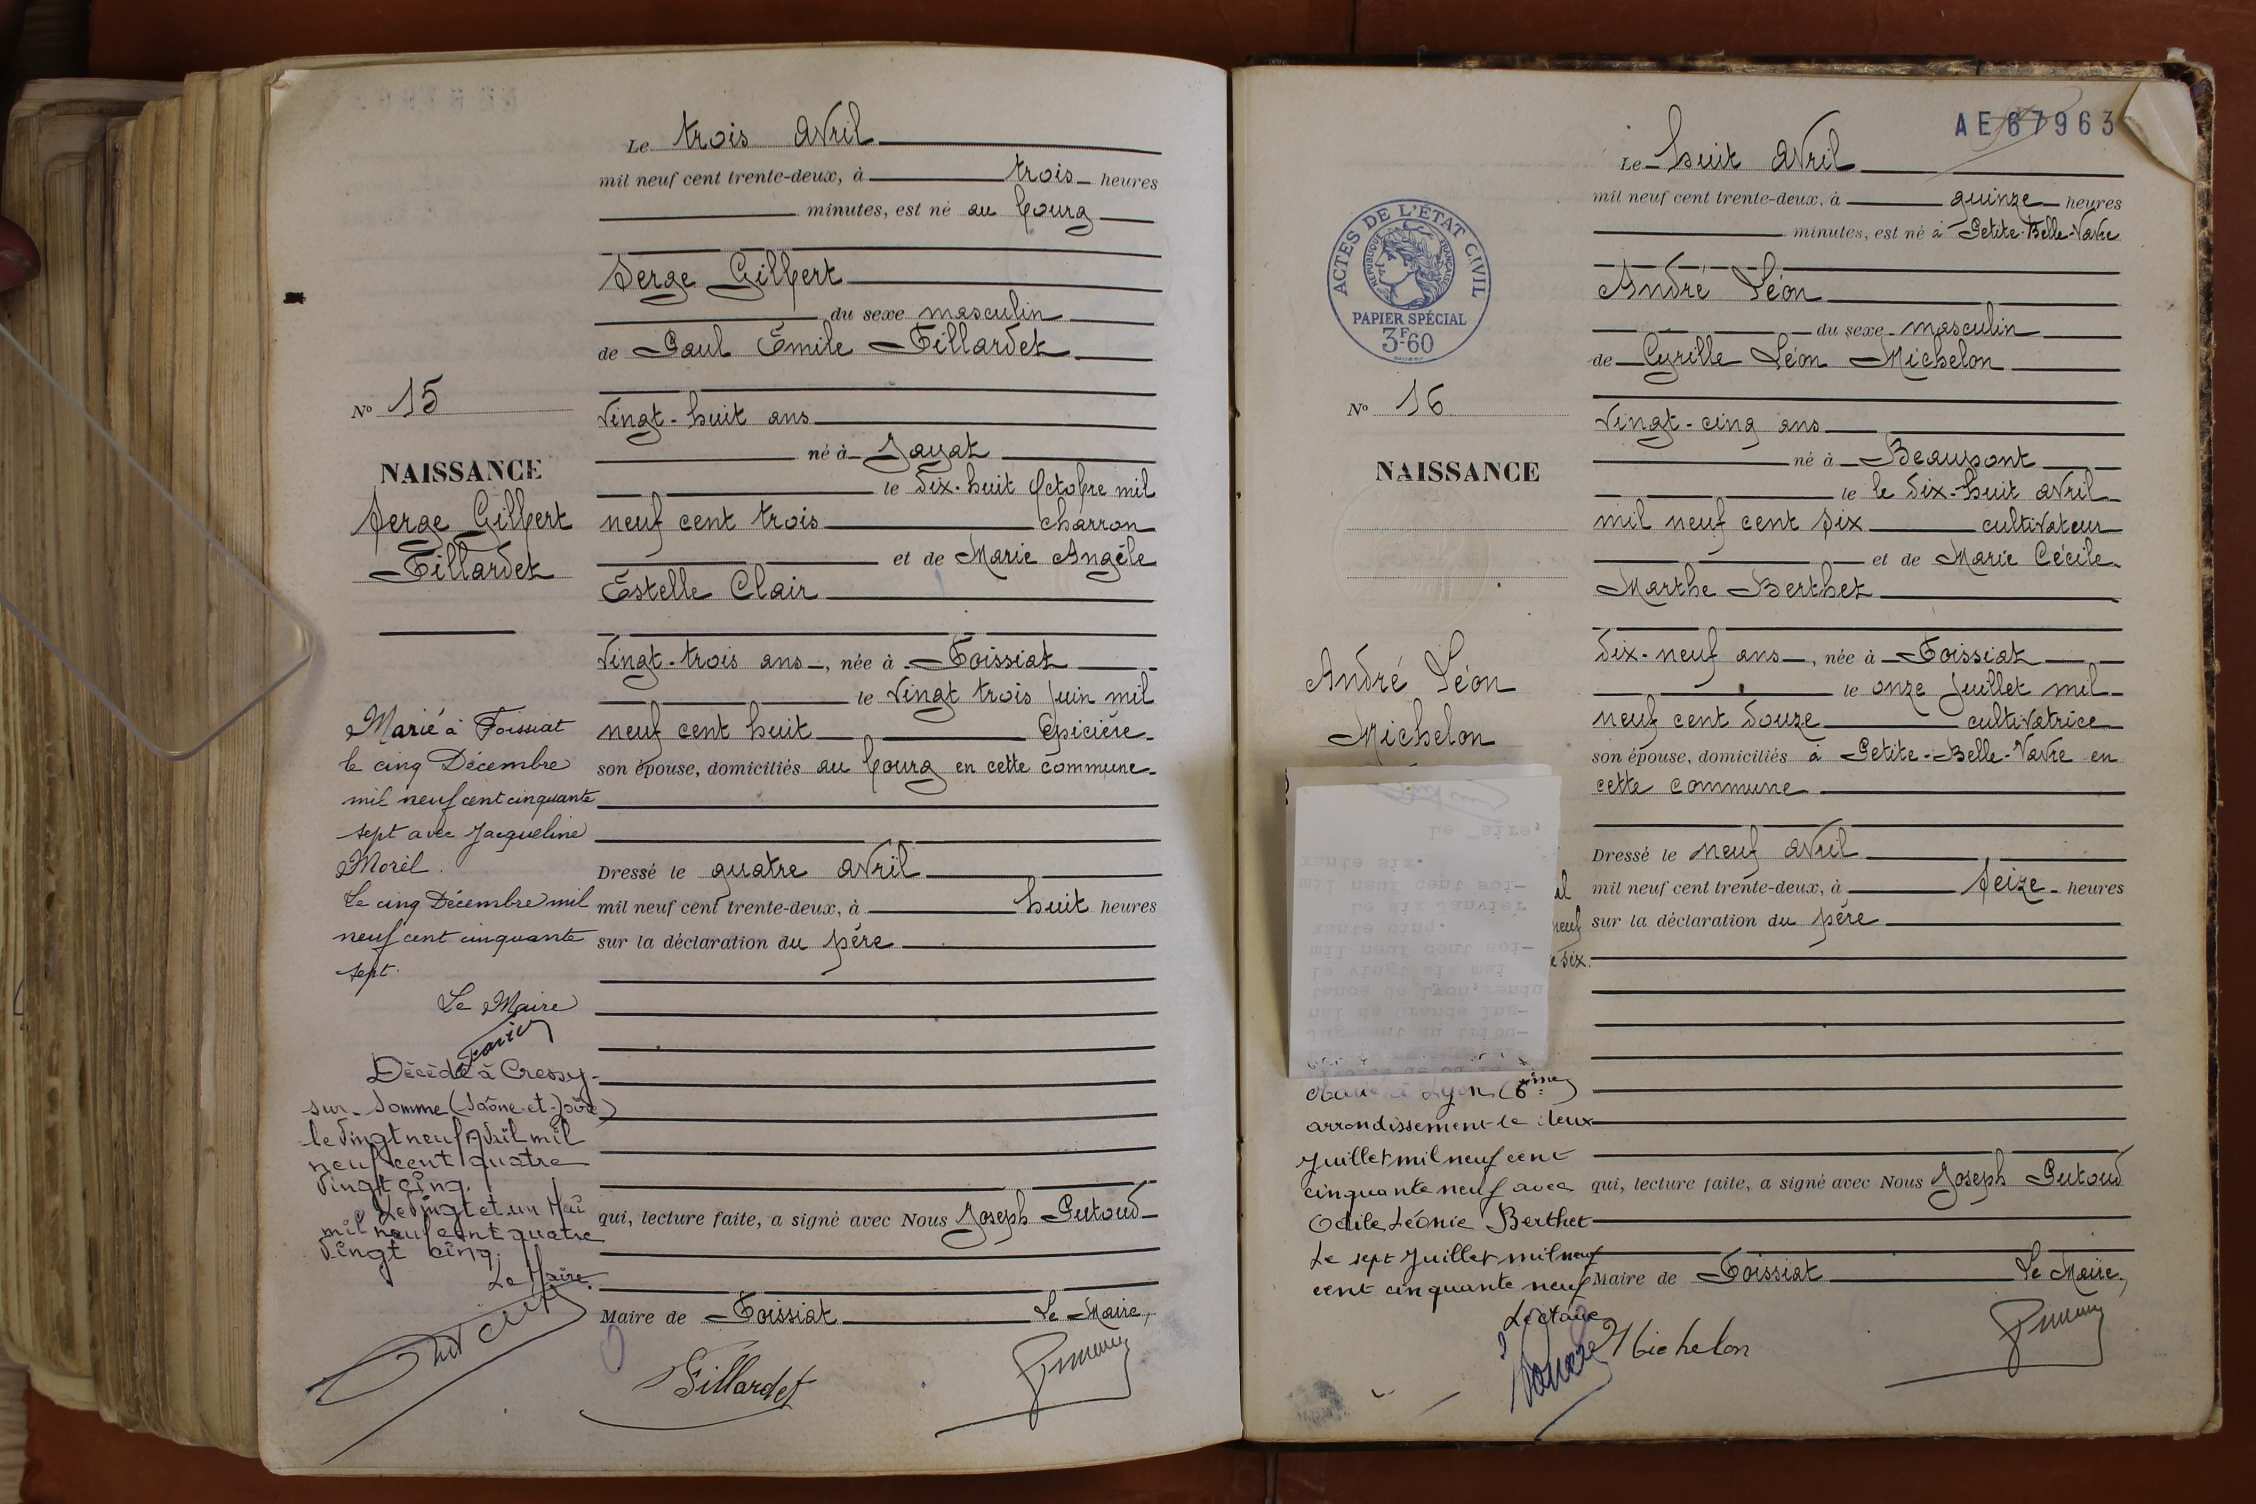 Le trois Avril
mil neuf cent trente-deux, à trois heures
minutes, est né au bourg
Serge Gilbert
du sexe masculin
de Paul Émile Fillardet
Vingt-huit ans
né à Jayat
le dix-huit Octobre mil
neuf cent trois charron
et de Marie Angèle
Estelle Clair
Vingt-trois ans, née à Foissiat
le Vingt trois Juin mil
neuf cent huit Épicière
son épouse, domiciliés au bourg en cette commune
Dressé le quatre Avril
mil neuf cent trente-deux, à huit heures
sur la déclaration du père
qui, lecture faite, a signé avec Nous Joseph Putoud
Maire de Foissiat Le Maire,
Fillardet
No 15
NAISSANCE
Serge Gilbert
Fillardet
Marié à Foissiat
le cinq Décembre
mil neuf cent cinquante
sept avec Jacqueline
Morel.
Le cinq Décembre mil
neuf cent cinquante
sept.
Le Maire
Décédé à Cressy-
sur-Somme (Saône-et-Loire)
le Vingt neuf Avril mil
neuf cent quatre
Vingt cinq.
Le Vingt et un Mai
mil neuf cent quatre
Vingt cinq.
Le Maire.
AE 67963
Le huit Avril
mil neuf cent trente-deux, à quinze heures
minutes, est né à Petite-Belle-Vavre
André Léon
du sexe masculin
de Cyrille Léon Michelon
Vingt-cinq ans
né à Beaupont
le le dix-huit Avril
mil neuf cent six cultivateur
et de Marie Cécile
Marthe Berthet
dix-neuf ans, née à Foissiat
le onze Juillet mil
neuf cent douze cultivatrice
son épouse, domiciliés à Petite-Belle-Vavre en
cette commune
Dressé le neuf Avril
mil neuf cent trente-deux, à seize heures
sur la déclaration du père
qui, lecture faite, a signé avec Nous Joseph Putoud
Maire de Foissiat Le Maire,
Michelon
ACTES DE L'ÉTAT CIVIL
RÉPUBLIQUE FRANÇAISE
PAPIER SPÉCIAL
3F60
No 16
NAISSANCE
André Léon
Michelon
neuf
six.
Lyon (6ème)
arrondissement le deux
Juillet mil neuf cent
cinquante neuf avec
Odile Léonie Berthet
Le sept Juillet mil neuf
cent cinquante neuf
Le Maire